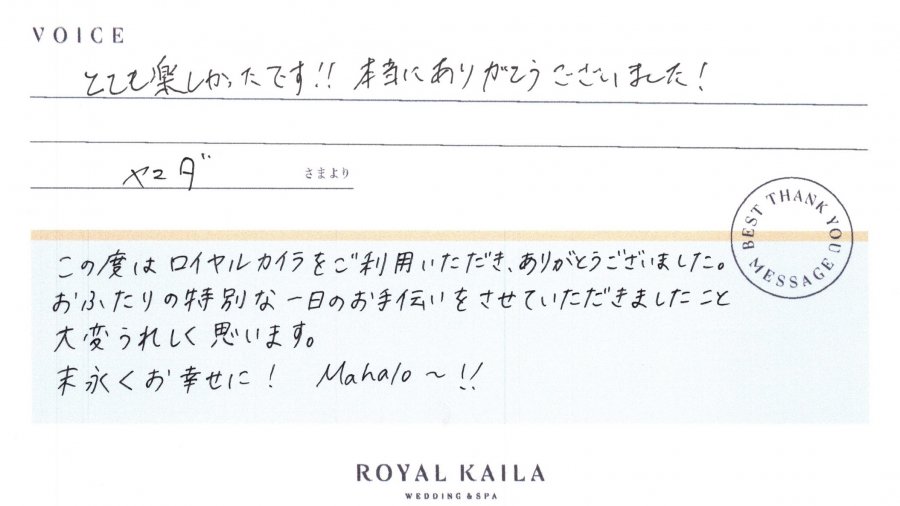 VOICE
とても楽しかったです!! 本当にありがとうございました!
ヤマダ さまより
BEST THANK YOU MESSAGE
この度はロイヤルカイラをご利用いただき、ありがとうございました。
おふたりの特別な一日のお手伝いをさせていただきましたこと
大変うれしく思います。
末永くお幸せに! Mahalo～!!
ROYAL KAILA
WEDDING & SPA